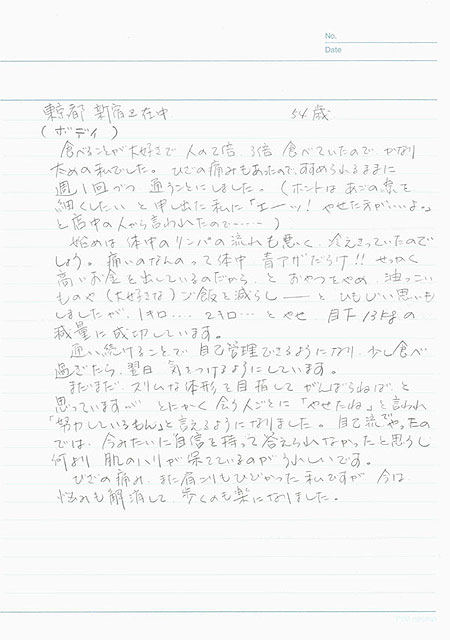 No.
Date
東京都 新宿区在中 54歳
(ボディ)
食べることが大好きで 人の2倍、3倍 食べていたので かなり
太めの私でした。 ひざの痛みもあったので、勧められるままに
週1回づつ 通うことにしました。(ホントは あごの窓を
細くしたい と申し出た私に「エーッ! やせた方がいいよ。」
と店中の人から言われたので……)
始めは 体中のリンパの流れも悪く、冷えきっていたので
しょう。痛いのなんのって体中 青アザだらけ!! せっかく
高いお金を出しているのだから、と おやつをやめ、油っこい
ものや(大好きな)ご飯を減らし ―― と ひもじい思いも
しましたが、1キロ… 2キロ… と やせ、目下 13kgの
減量に成功しています。
通い続けることで 自己管理できるようになり、少し食べ
過ぎたら、翌日 気をつけるようにしています。
まだまだ スリムな体形を目指して がんばらねば と
思っていますが とにかく 会う人ごとに「やせたね」と言われ
「努力しているもん」と言えるようになりました。自己流でやったの
では、今みたいに自信を持って答えられなかったと思うし
何より 肌のハリが保てているのがうれしいです。
ひざの痛み、また肩こりもひどかった私ですが 今は
悩みも解消して、歩くのも楽になりました。